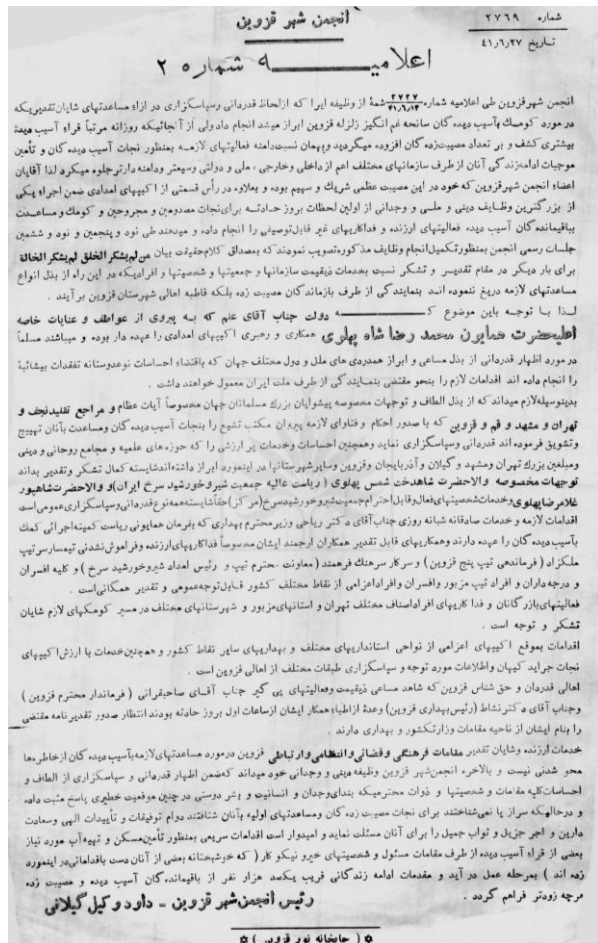 شماره ۲۷۶۹
تاریخ ۴۱٫۶٫۲۷
انجمن شهر قزوین
اعلامیه شماره ۲
انجمن شهر قزوین طی اعلامیه شماره ۲۷۲۷ ۴۱٫۶٫۱۳ شمهٔ از وظیفه ایرا که از لحاظ قدردانی وسپاسگزاری در ازاء مساعدتهای شایان تقدیریکه
در مورد کومك بآسیب دیده گان سانحه غم انگیز زلزله قزوین ابراز میشد انجام داد ولی از آنجائیکه روزانه مرتباً قراء آسیب دیدهٔ
بیشتری کشف و بر تعداد مصیبت زده گان افزوده میگردید وبهمان نسبت دامنه فعالیتهای لازمه بمنظور نجات آسیب دیده گان و تأمین
موجبات ادامه زندگی آنان از طرف سازمانهای مختلف اعم از داخلی وخارجی ، ملی و دولتی وسیعتر ودامنه دارتر جلوه میکرد لذا آقایان
اعضاء انجمن شهر قزوین که خود در این مصیبت عظمی شریك و سهیم بوده و بعلاوه در رأس قسمتی از اکیپهای امدادی ضمن اجراء یکی
از بزرگترین وظایف دینی و ملی و وجدانی از اولین لحظات بروز حادثه برای نجات مصدومین و مجروحین و کومك و مساعدت
بباقیمانده گان آسیب دیده فعالیتهای ارزنده و فداکاریهای غیر قابل توصیفی را انجام داده و میدهند طی نود و پنجمین و نود و ششمین
جلسات رسمی انجمن بمنظور تکمیل انجام وظایف مذکوره تصویب نمودند که بمصداق کلام حقیقت بیان من لم یشکر الخلق لم یشکر الخالق
برای بار دیگر در مقام تقدیر و تشکر نسبت بخدمات ذیقیمت سازمانها و جمعیتها و شخصیتها و افرادیکه در این راه از بذل انواع
مساعدتهای لازمه دریغ ننموده اند بنمایندگی از طرف بازماندگان مصیبت زده بلکه قاطبه اهالی شهرستان قزوین بر آیند .
لذا با توجه باین موضوع که دولت جناب آقای علم که به پیروی از عواطف و عنایات خاصه
اعلیحضرت همایون محمد رضا شاه پهلوی همکاری و رهبری اکیپهای امدادی را عهده دار بوده و میباشند مسلماً
در مورد اظهار قدردانی از بذل مساعی و ابراز همدردی های ملل و دول مختلف جهان که باقتضاء احساسات نوعدوستانه تفقدات بیشائبهٔ
را انجام داده اند اقدامات لازم را بنحو مقتضی بنمایندگی از طرف ملت ایران معمول خواهند داشت .
بدینوسیله لازم میداند که از بذل الطاف و توجهات مخصوصه پیشوایان بزرگ مسلمانان جهان مخصوصاً آیات عظام و مراجع تقلید نجف و
تهران و مشهد و قم و قزوین که با صدور احکام و فتاوای لازمه پیروان مکتب تشیع را بنجات آسیب دیده گان ومساعدت بآنان تهییج
وتشویق فرموده اند قدردانی وسپاسگزاری نماید وهمچنین احساسات وخدمات پر ارزشی را که حوزه های علمیه و مجامع روحانی و دینی
ومبلغین بزرگ تهران ومشهد و گیلان و آذربایجان وقزوین وسایر شهرستانها در اینمورد ابراز داشته اند شایسته کمال تشکر وتقدیر بداند
توجهات مخصوصه والاحضرت شاهدخت شمس پهلوی ( ریاست عالیه جمعیت شیر و خورشید سرخ ایران ) و والاحضرت شاهپور
غلامرضا پهلوی و خدمات شخصیتهای فعال وقابل احترام جمعیت شیر و خورشید سرخ ( مرکز ) حقاً شایسته همه نوع قدردانی وسپاسگزاری عمومی است
اقدامات لازمه و خدمات صادقانه شبانه روزی جناب آقای دکتر ریاحی وزیر محترم بهداری که بفرمان همایونی ریاست کمیته اجرائی کمك
بآسیب دیده گان را عهده دارند وهمکاریهای قابل تقدیر همکاران ارجمند ایشان مخصوصاً فداکاریهای ارزنده وفراموش نشدنی تیمسار سرتیپ
ملکزاد ( فرماندهی تیپ پنج قزوین ) و سرکار سرهنگ فرهمند ( معاونت محترم تیپ و رئیس امداد شیر و خورشید سرخ ) و کلیه افسران
و درجه داران و افراد تیپ مزبور وافسران وافراد اعزامی از نقاط مختلف کشور قابل توجه عمومی و تقدیر همگانی است .
فعالیتهای بازرگانان و فداکاریهای افراد اصناف مختلف تهران و استانهای مزبور و شهرستانهای مختلف در مسیر کومکهای لازم شایان
تشکر و توجه است .
اقدامات بموقع اکیپهای اعزامی از نواحی استانداریهای مختلف و بهداریهای سایر نقاط کشور و همچنین خدمات با ارزش اکیپهای
نجات جراید کیهان واطلاعات مورد توجه و سپاسگزاری طبقات مختلف از اهالی قزوین است .
اهالی قدردان و حق شناس قزوین که شاهد مساعی ذیقیمت وفعالیتهای پی گیر جناب آقای صاحبقرانی ( فرماندار محترم قزوین )
وجناب آقای دکتر نشاط ( رئیس بهداری قزوین ) وعدهٔ از اطباء همکار ایشان از ساعات اول بروز حادثه بودند انتظار صدور تقدیرنامه مقتضی
را بنام ایشان از ناحیه مقامات وزارت کشور و بهداری دارند .
خدمات ارزنده وشایان تقدیر مقامات فرهنگی و قضائی و انتظامی و ارتباطی قزوین در مورد مساعدتهای لازمه بآسیب دیده گان از خاطره ها
محو شدنی نیست و بالاخره انجمن شهر قزوین وظیفه دینی و وجدانی خود میداند که ضمن اظهار قدردانی و سپاسگزاری از الطاف و
احساسات کلیه مقامات و شخصیتها و ذوات محترمیکه بندای وجدان و انسانیت و بشر دوستی در چنین موقعیت خطیری پاسخ مثبت داده
و در حالیکه سر از پا نمی شناختند برای نجات مصیبت زده گان ومساعدتهای اولیه بآنان شتافتند دوام توفیقات و تأییدات الهی وسعادت
دارین و اجر جزیل و ثواب جمیل را برای آنان مسئلت نماید و امیدوار است اقدامات سریعی بمنظور تأمین مسکن و تهیه آب مورد نیاز
بعضی از قراء آسیب دیده از طرف مقامات مسئول و شخصیتهای خیر و نیکوکار ( که خوشبختانه بعضی از آنان دست باقداماتی در اینمورد
زده اند ) بمرحله عمل در آید و مقدمات ادامه زندگانی قریب یکصد هزار نفر از باقیمانده گان آسیب دیده و مصیبت زده
هرچه زودتر فراهم گردد .
رئیس انجمن شهر قزوین - داود وکیل گیلانی
( چاپخانه نور قزوین )